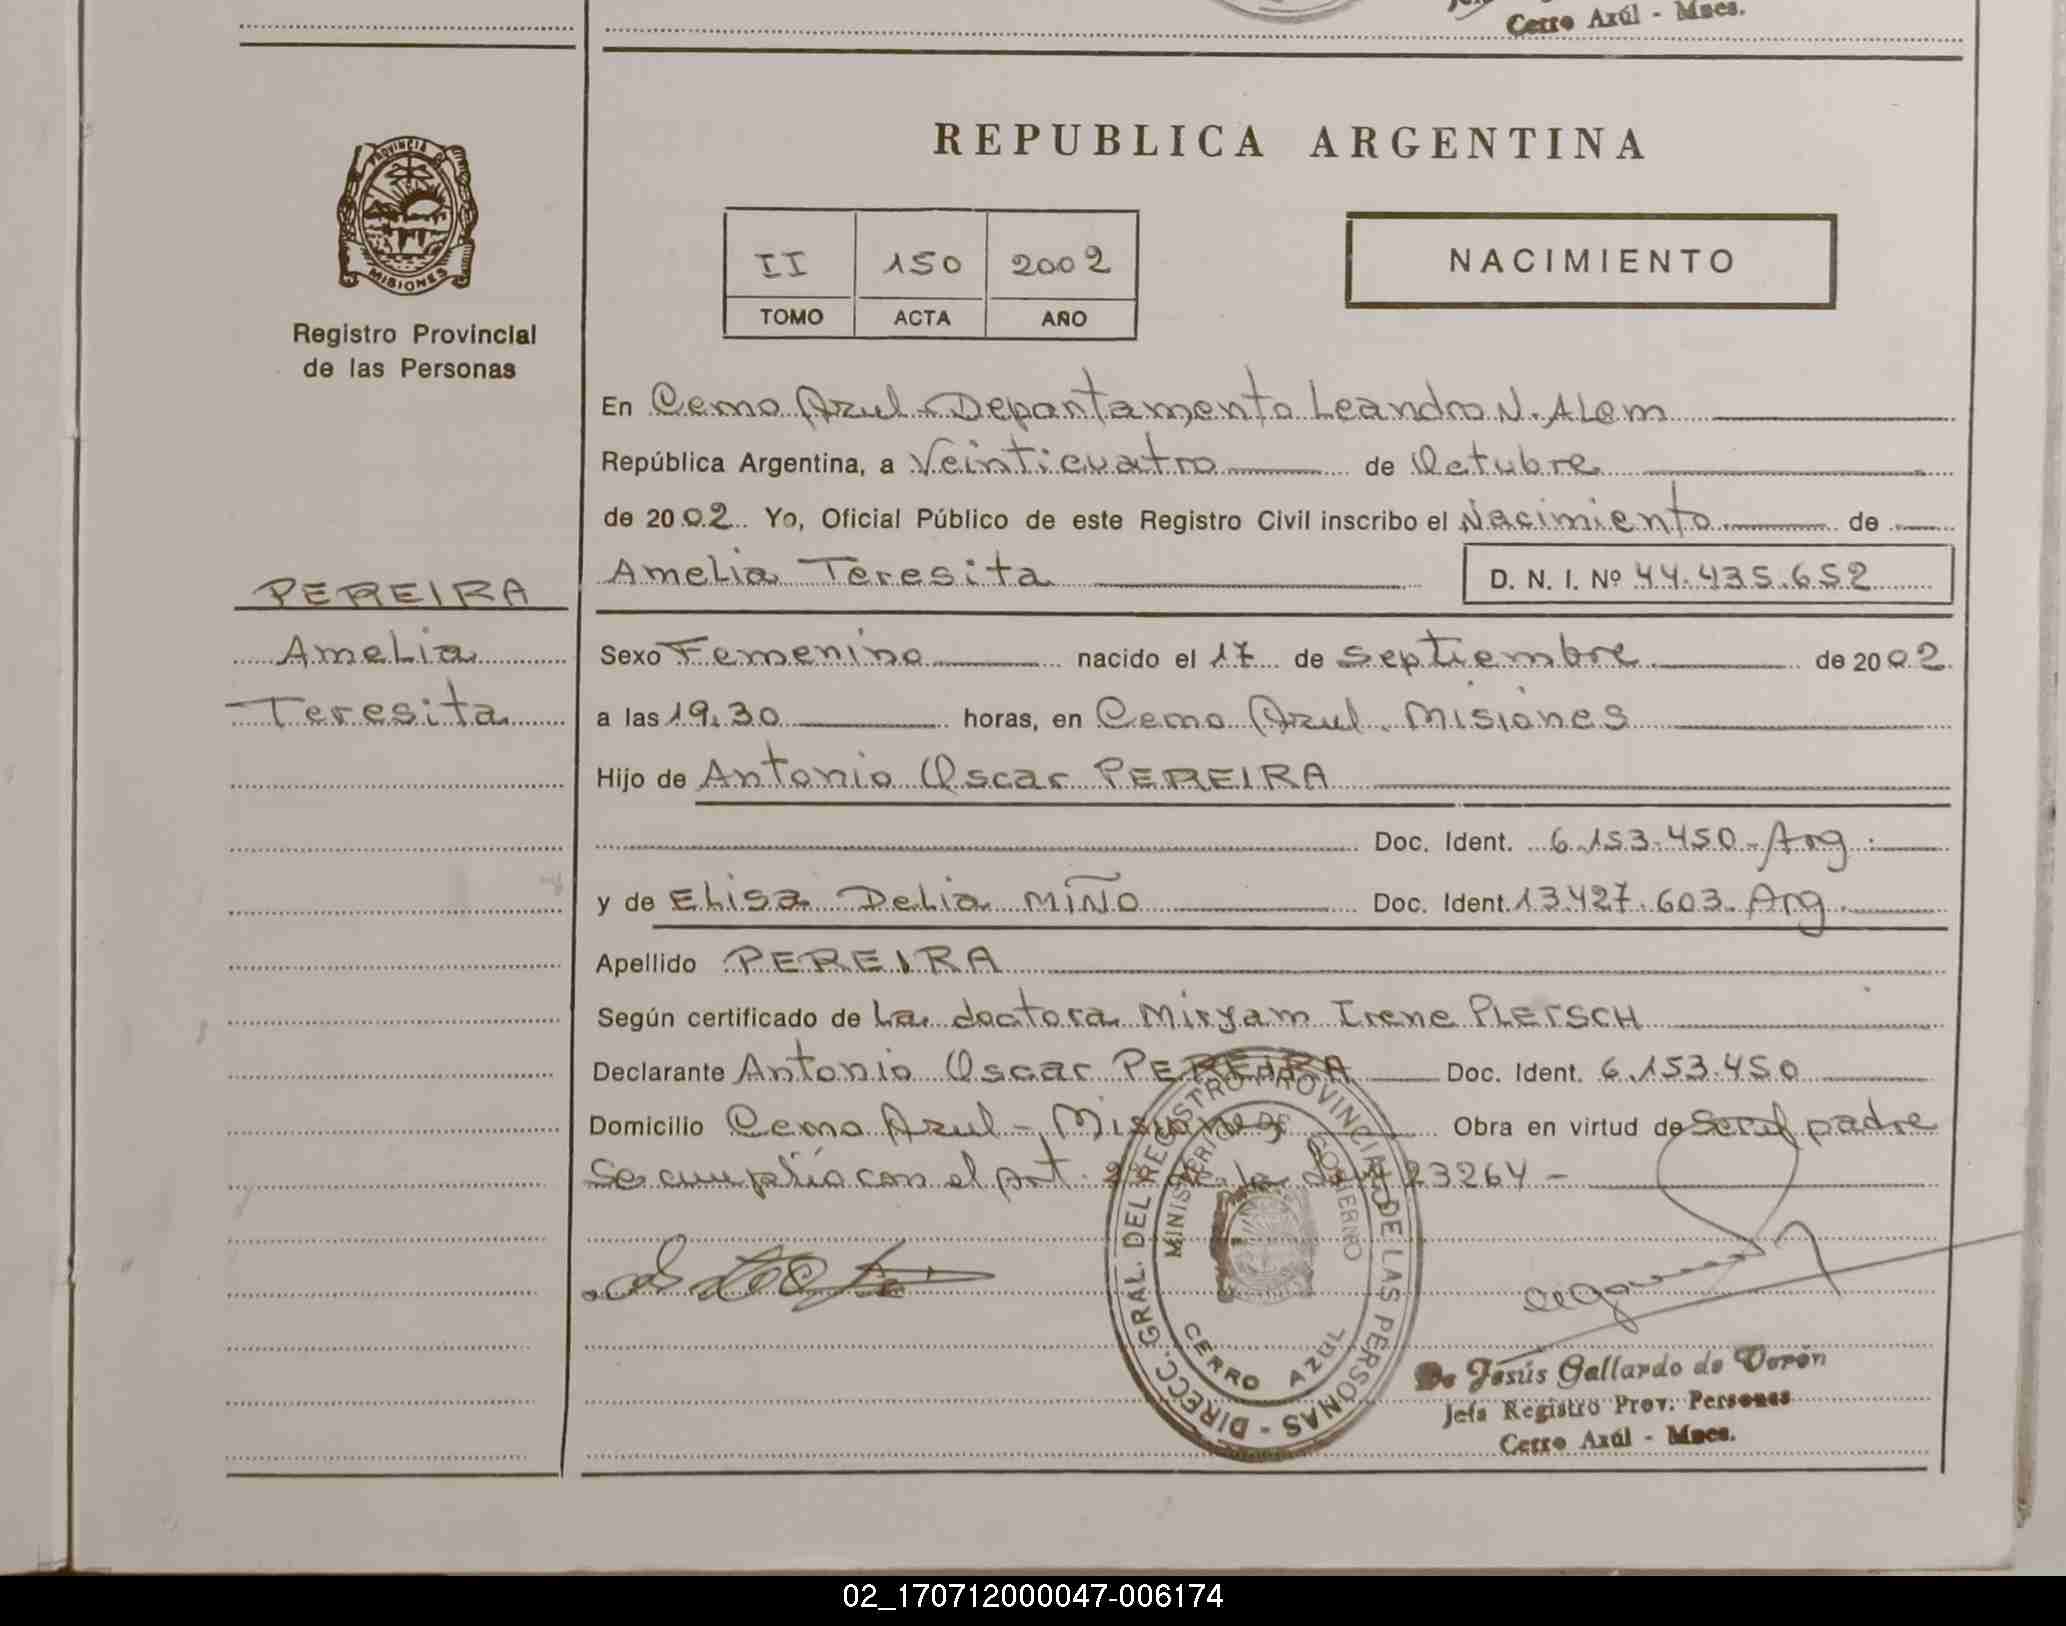 Cerro Azúl - Mnes.
REPUBLICA ARGENTINA
PROVINCIA DE
MISIONES
Registro Provincial
de las Personas
II 150 2002
TOMO ACTA AÑO
NACIMIENTO
En Cerro Azul - Departamento Leandro N. Alem
República Argentina, a Veinticuatro de Octubre
de 2002 Yo, Oficial Público de este Registro Civil inscribo el Nacimiento de
Amelia Teresita D. N. I. Nº 44.435.652
PEREIRA
Amelia
Teresita
Sexo Femenino nacido el 17 de Septiembre de 2002
a las 19,30 horas, en Cerro Azul. Misiones
Hijo de Antonio Oscar PEREIRA
Doc. Ident. 6.153.450-Arg.
y de Elisa Delia MIÑO Doc. Ident. 13427.603. Arg.
Apellido PEREIRA
Según certificado de La doctora Miryam Irene PLETSCH
Declarante Antonio Oscar PEREIRA Doc. Ident. 6.153.450
Domicilio Cerro Azul - Misiones Obra en virtud de Ser el padre
Se cumplió con el Art. de la Ley 23264 -
DIRECC. GRAL. DEL REGISTRO PROVINCIAL DE LAS PERSONAS -
MINISTERIO DE GOBIERNO
CERRO AZUL
De Jesús Gallardo de Verón
Jefa Registro Prov. Personas
Cerro Azúl - Mnes.
02_170712000047-006174